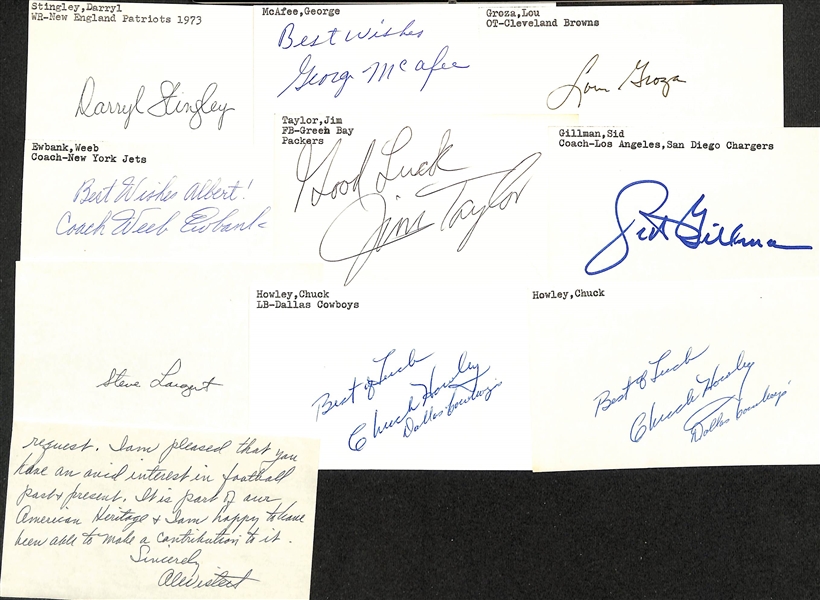 Stingley,Darryl
WR-New England Patriots 1973
Darryl Stingley
McAfee,George
Best Wishes
George McAfee
Groza,Lou
OT-Cleveland Browns
Lou Groza
Ewbank,Weeb
Coach-New York Jets
Best Wishes Albert!
Coach Weeb Ewbank
Taylor,Jim
FB-Green Bay
Packers
Good Luck
Jim Taylor
Gillman,Sid
Coach-Los Angeles,San Diego Chargers
Sid Gillman
Steve Largent
Howley,Chuck
LB-Dallas Cowboys
Best of Luck
Chuck Howley
Dallas Cowboys
Howley,Chuck
Best of Luck
Chuck Howley
Dallas Cowboys
request. I am pleased that you
have an avid interest in football
past & present. It is part of our
American Heritage & I am happy to have
been able to make a contribution to it.
Sincerely
Al Wistert